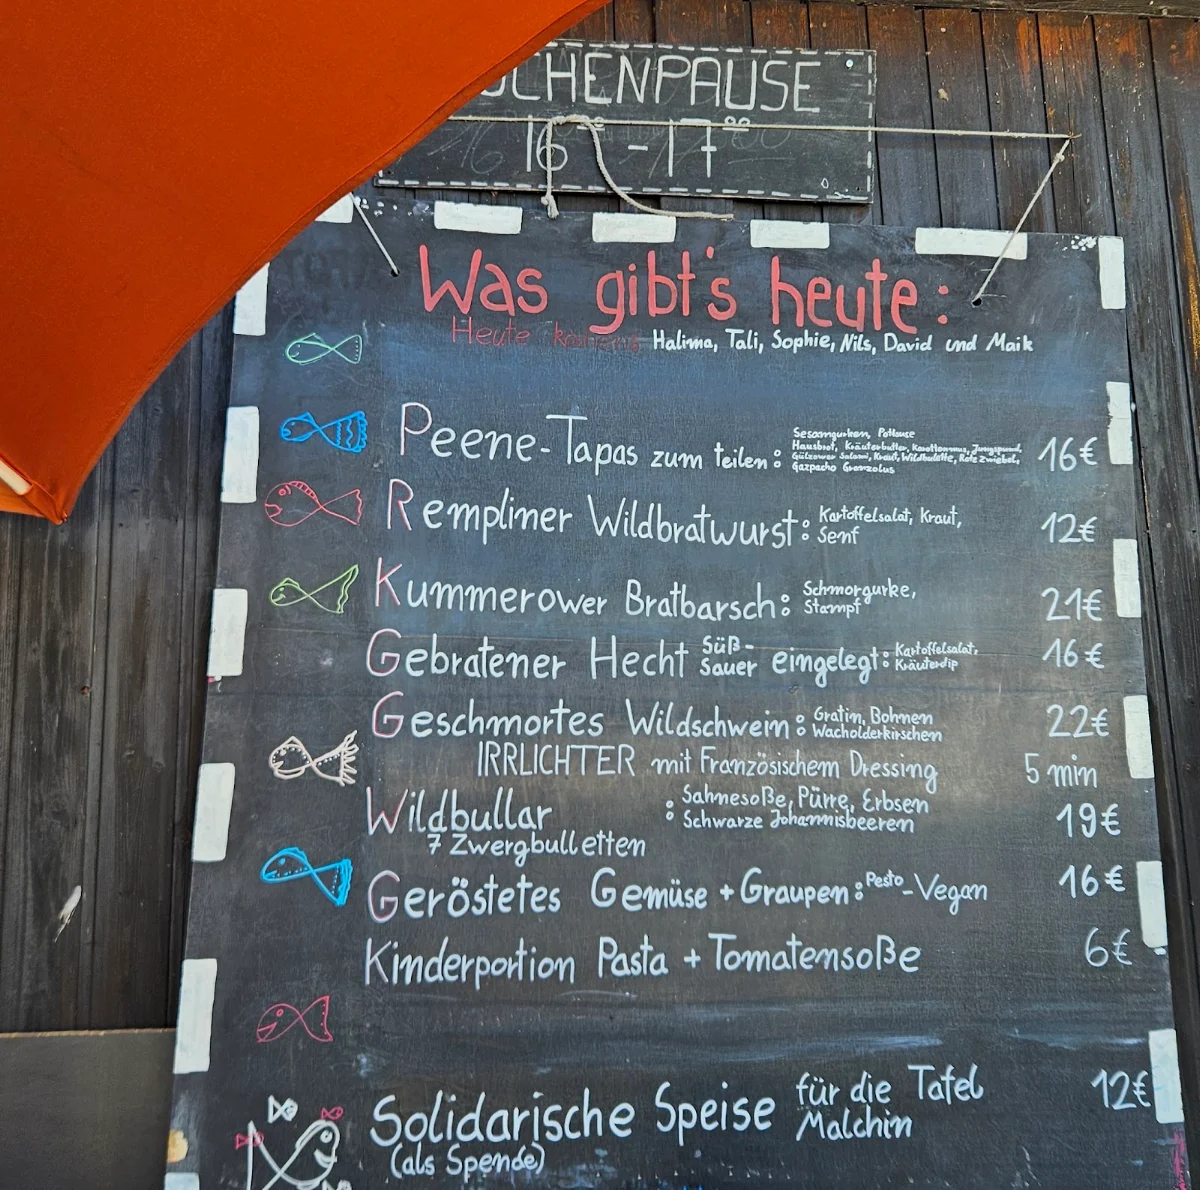 CHENPAUSE
16⁰⁰ - 17⁰⁰
Was gibt's heute:
Heute Halima, Tali, Sophie, Nils, David und Maik
Peene-Tapas zum teilen:
Sesamgurken,
Hausbrot, Kräuterbutter,
Gülzower Salami, Kraut, Wildbulette, Rote Zwiebel,
Gazpacho
16€
Rempliner Wildbratwurst: Kartoffelsalat, Kraut,
Senf
12€
Kummerower Bratbarsch: Schmorgurke,
Stampf
21€
Gebratener Hecht Süß-
Sauer eingelegt: Kartoffelsalat,
Kräuterdip
16€
Geschmortes Wildschwein: Gratin, Bohnen
Wacholderkirschen
22€
IRRLICHTER mit Französischem Dressing 5 min
Wildbullar : Sahnesoße, Pürre, Erbsen
Schwarze Johannisbeeren
19€
7 Zwergbulletten
Geröstetes Gemüse + Graupen: Pesto - Vegan 16€
Kinderportion Pasta + Tomatensoße 6€
Solidarische Speise für die Tafel
Malchin
12€
(als Spende)